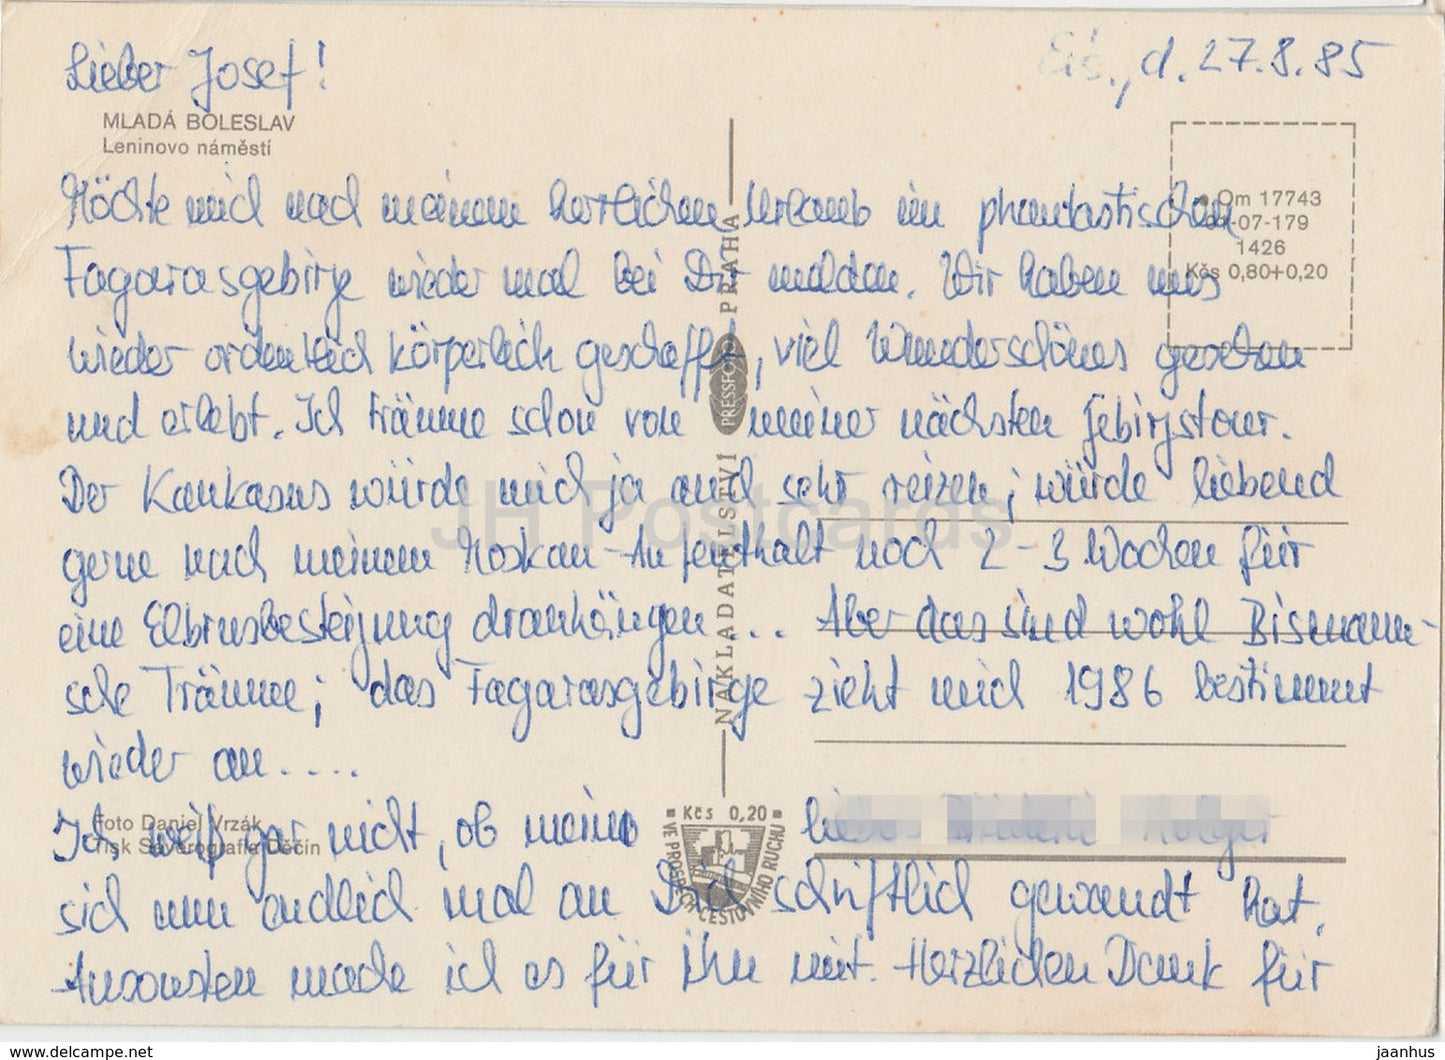 Lieber Josef!
Eis., d. 27.8.85
MLADÁ BOLESLAV
Leninovo náměstí
Om 17743
07-179
1426
Kčs 0,80+0,20
Möchte mich nach meinem herrlichen Urlaub im phantastischen
Fagarasgebirge wieder mal bei Dir melden. Wir haben uns
wieder ordentlich körperlich geschafft, viel Wunderschönes gesehen
und erlebt. Ich träume schon von meiner nächsten Gebirgstour.
Der Kaukasus würde mich ja auch sehr reizen; würde liebend
gerne nach meinem Moskau-Aufenthalt noch 2-3 Wochen für
eine Elbrusbesteigung dranhängen... Aber das sind wohl Bismann-
sche Träume; das Fagarasgebirge zieht mich 1986 bestimmt
wieder an....
Ich weiß gar nicht, ob meine liebes Holger
sich nun endlich mal an Dich schriftlich gewandt hat.
Ansonsten mache ich es für ihn mit. Herzlichen Dank für
PRAHA
PRESSFOTO
NAKLADATELSTVÍ
Foto Daniel Vrzák
Tisk Severografia Děčín
Kčs 0,20
VE PROSPĚCH CESTOVNÍHO RUCHU
JH Postcards
www.delcampe.net
jaanhus